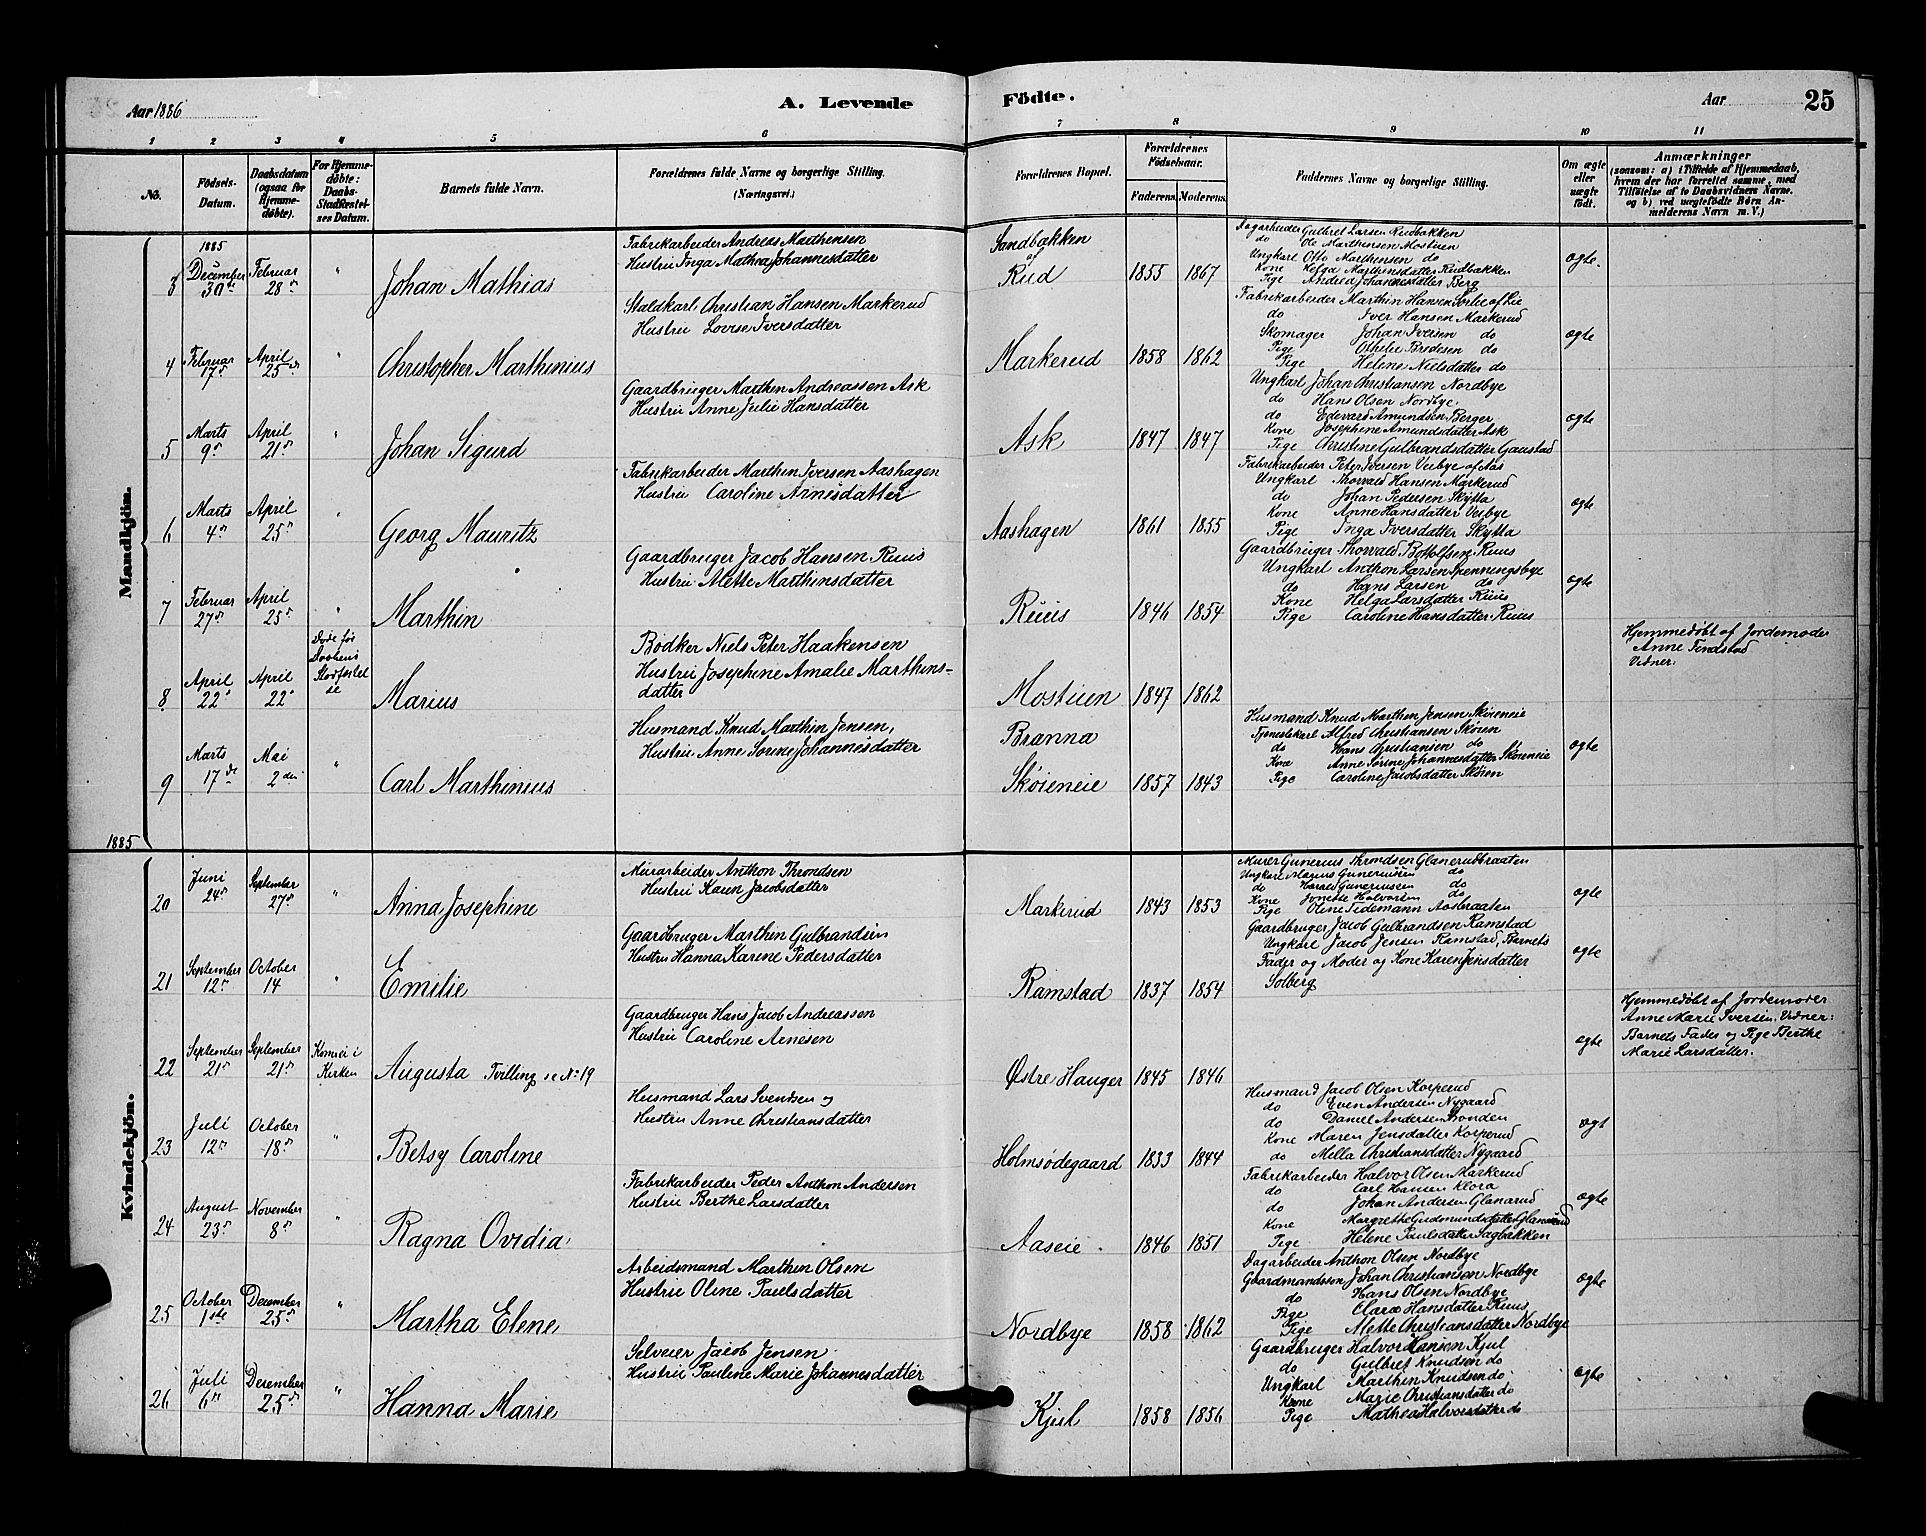 Aar 1886
A. Levende Födte.
Aar 25
1 2 3 4 5 6 7 8 9 10 11
No.
Födsels-Datum.
Daabsdatum (ogsaa for Hjemmedöbte).
For Hjemmedöbte: Daabs-Stadfæstelses Datum.
Barnets fulde Navn.
Forældrenes fulde Navne og borgerlige Stilling. (Næringsvei.)
Forældrenes Bopæl.
Forældrenes Födselsaar.
Faderens. Moderens.
Faddernes Navne og borgerlige Stilling.
Om ægte eller uægte födt.
Anmærkninger
(saasom: a) i Tilfælde af Hjemmedaab, hvem der har forrettet samme, med Tilföielse af to Daabsvidners Navne. og b) ved uægtefödte Børn Anmelderens Navn m. V.)
Mandkjön.
3
1885 December 30te
Februar 28de
"
Johan Mathias
Fabrikarbeider Andreas Marthensen
Hustru Inga Mathea Johannesdatter
Sandbakken af Rud
1855 1867
Dagarbeider Gulbret Larsen Rudbakken
do Ole Marthensen Mostuen
Ungkarl Otto Marthensen do
Kone Helga Marthinsdatter Rudbakken
Pige Andrea Johannesdatter Berg
ægte.
4
Februar 17de
April 25de
"
Christopher Marthinius
Staldkarl Christian Hansen Markerud
Hustru Lovise Iversdatter
Markerud
1858 1862
Fabrikarbeider Marthin Hansen Sorlie af Lie
do Iver Hansen Markerud
Skomager Johan Iversen do
Pige Othelie Bredesen do
Pige Helene Nielsdatter do
ægte
5
Marts 9de
April 21de
"
Johan Sigurd
Gaardbruger Marthin Andreassen Ask
Hustru Anne Julie Hansdatter
Ask
1847 1847
Ungkarl Johan Christiansen Nordbye
do Hans Olsen Nordbye.
do Edevard Amundsen Berger
Kone Josephine Amundsdatter Ask
Pige Christine Gulbrandsdatter Gaustad
ægte
6
Marts 4de
April 25de
"
Georg Mauritz
Fabrikarbeider Marthin Iversen Aashagen
Hustru Caroline Arnesdatter
Aashagen
1861 1855
Fabrikarbeider Peter Iversen Veibye af Aas
Ungkarl Thorvald Hansen Markerud
do Johan Pedersen Skytta
Kone Anne Hansdatter Veibye
Pige Inga Iversdatter Skytta
ægte
7
Februar 27de
April 25de
"
Marthin
Gaardbruger Jacob Hansen Ruus
Hustru Alette Marthinsdatter
Ruus
1846 1854
Gaardbruger Thorvald Bottolfsen Ruus
Ungkarl Anthon Larsen Spenningsbye
do Hans Larsen do
Kone Helga Larsdatter Ruus
Pige Caroline Hansdatter Ruus
ægte
8
April 22de
April 22de
Døde før Daabens Stadfæstelse
Marius
Bødker Niels Peter Haakensen
Hustru Josephine Amalie Marthinsdatter
Mostuen
1847 1862
Hjemmedøbt af Jordemoder
Anne Findstad
Vidner:
9
Marts 17de
Mai 2den
"
Carl Marthinius
Husmand Knud Marthin Jensen,
Hustru Anne Sorine Johannesdatter
Brænna
Skøieneie
1857 1843
Husmand Knud Marthin Jensen Skøieneie
Tjenestekarl Alfred Christiansen Skøien
do Hans Christiansen do
Kone Anne Sørine Johannesdatter Skøieneie
Pige Caroline Jacobsdatter Skøien
ægte
1885
Kvindekjön.
20
Juni 24de
September 27de
"
Anna Josephine
Murarbeider Anthon Throndsen
Hustru Karen Jacobsdatter
Markerud
1843 1853
Murer Gunerius Throndsen Glanerudbraaten
Ungkarl Magnus Guneriusen do
do Harald Guneriussen do
Kone Jonette Halvorsen do
Pige Oline Tidemann Aasbraaten
ægte
21
September 12te
October 14
"
Emilie
Gaardbruger Marthin Gulbrandsen
Hustru Hanna Karine Pedersdatter
Ramstad
1837 1854
Gaardbruger Jacob Gulbrandsen Ramstad
Ungkarl Jacob Jensen Ramstad, Barnets
Fader og Moder og Kone Karen Jensdatter
Solberg
ægte
22
September 21de
September 21de
Kom ei i Kirken
Augusta Tvilling se No 19
Gaardbruger Hans Jacob Andreassen
Hustru Caroline Arnesen
Østre Hauger
1845 1846
ægte
Hjemmedøbt af Jordemoder
Anne Marie Iversen. Vidner:
Barnets Fader og Pige Berthe
Marie Larsdatter.
23
Juli 12te
October 18de
"
Betsy Caroline
Husmand Lars Svendsen og
Hustru Anne Christiansdatter
Holmsødegaard
1833 1844
Husmand Jacob Olsen Korperud
do Even Andersen Nygaard
do Daniel Andersen
Kone Maren Jensdatter Korperud
do Mella Christiansdatter Nygaard
ægt
24
August 23de
November 8de
"
Ragna Ovidia
Fabrikarbeider Peder Anthon Andersen
Hustru Berthe Larsdatter
Aaseie
1846 1851
Fabrikarbeider Halvor Olsen Markerud
do Carl Hansen Klora
do Johan Andersen Glanerud
Kone Margrethe Gudmundsdatter Glanerud
Pige Helene Paulsdatter Sagbakken
ægte
25
October 1ste
December 25de
"
Martha Elene
Arbeidsmand Marthin Olsen
Hustru Oline Paulsdatter
Nordbye
1858 1862
Dagarbeider Anthon Olsen Nordbye
Gaardmandssøn Johan Christiansen Nordbye
do Hans Olsen Nordbye
Pige Clara Hansdatter Ruus
Pige Alette Christiansdatter Nordbye
ægte
26
Juli 6te
December 25de
"
Hanna Marie
Selveier Jacob Jensen
Hustru Pauline Marie Johannesdatter
Kjul
1858 1856
Gaardbruger Halvor Hansen Kjul
do Gulbret Knudsen do
Ungkarl Marthin Knudsen do
Kone Marie Christiansdatter do
Pige Mathea Halvorsdatter do
ægte